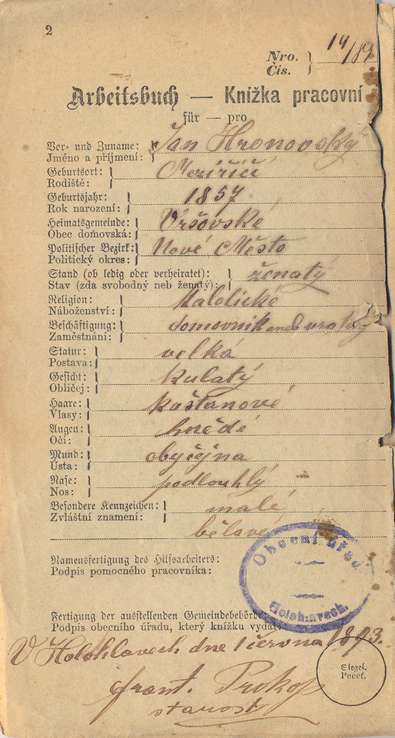 2
Nro.
Čís.
14/893
Arbeitsbuch — Knížka pracovní
für — pro
Vor- und Zuname:
Jméno a příjmení:
Jan Hronovský
Geburtsort:
Rodiště:
Meziříčí
Geburtsjahr:
Rok narození:
1857
Heimatsgemeinde:
Obec domovská:
Vršovské
Politischer Bezirk:
Politický okres:
Nové Město
Stand (ob ledig oder verheiratet):
Stav (zda svobodný neb ženatý):
ženatý
Religion:
Náboženství:
katolické
Beschäftigung:
Zaměstnání:
domovník
Statur:
Postava:
velká
Gesicht:
Obličej:
kulatý
Haare:
Vlasy:
kaštanové
Augen:
Oči:
hnědé
Mund:
Ústa:
obyčejna
Nase:
Nos:
podlouhlý
Besondere Kennzeichen:
Zvláštní znamení:
malé
Namensfertigung des Hilfsarbeiters:
Podpis pomocného pracovníka:
Obecní úřad
Holohlavech.
Fertigung der ausstellenden Gemeindebehörde
Podpis obecního úřadu, který knížku vydal:
V Holohlavech dne 1 června 1893.
Siegel.
Pečeť.
Frant. Prokop
starosta